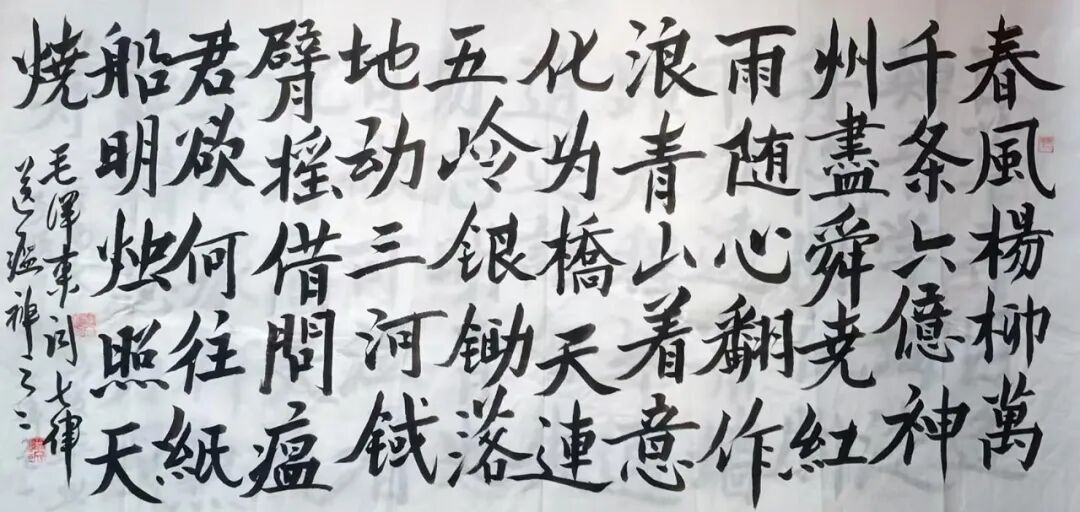 春風楊柳萬
千条六億神
州盡舜尭紅
雨随心翻作
浪青山着意
化为橋天連
五岭银锄落
地动三河铁
臂摇借問瘟
君欲何往紙
船明烛照天
焼
毛泽東词七律
送瘟神之二